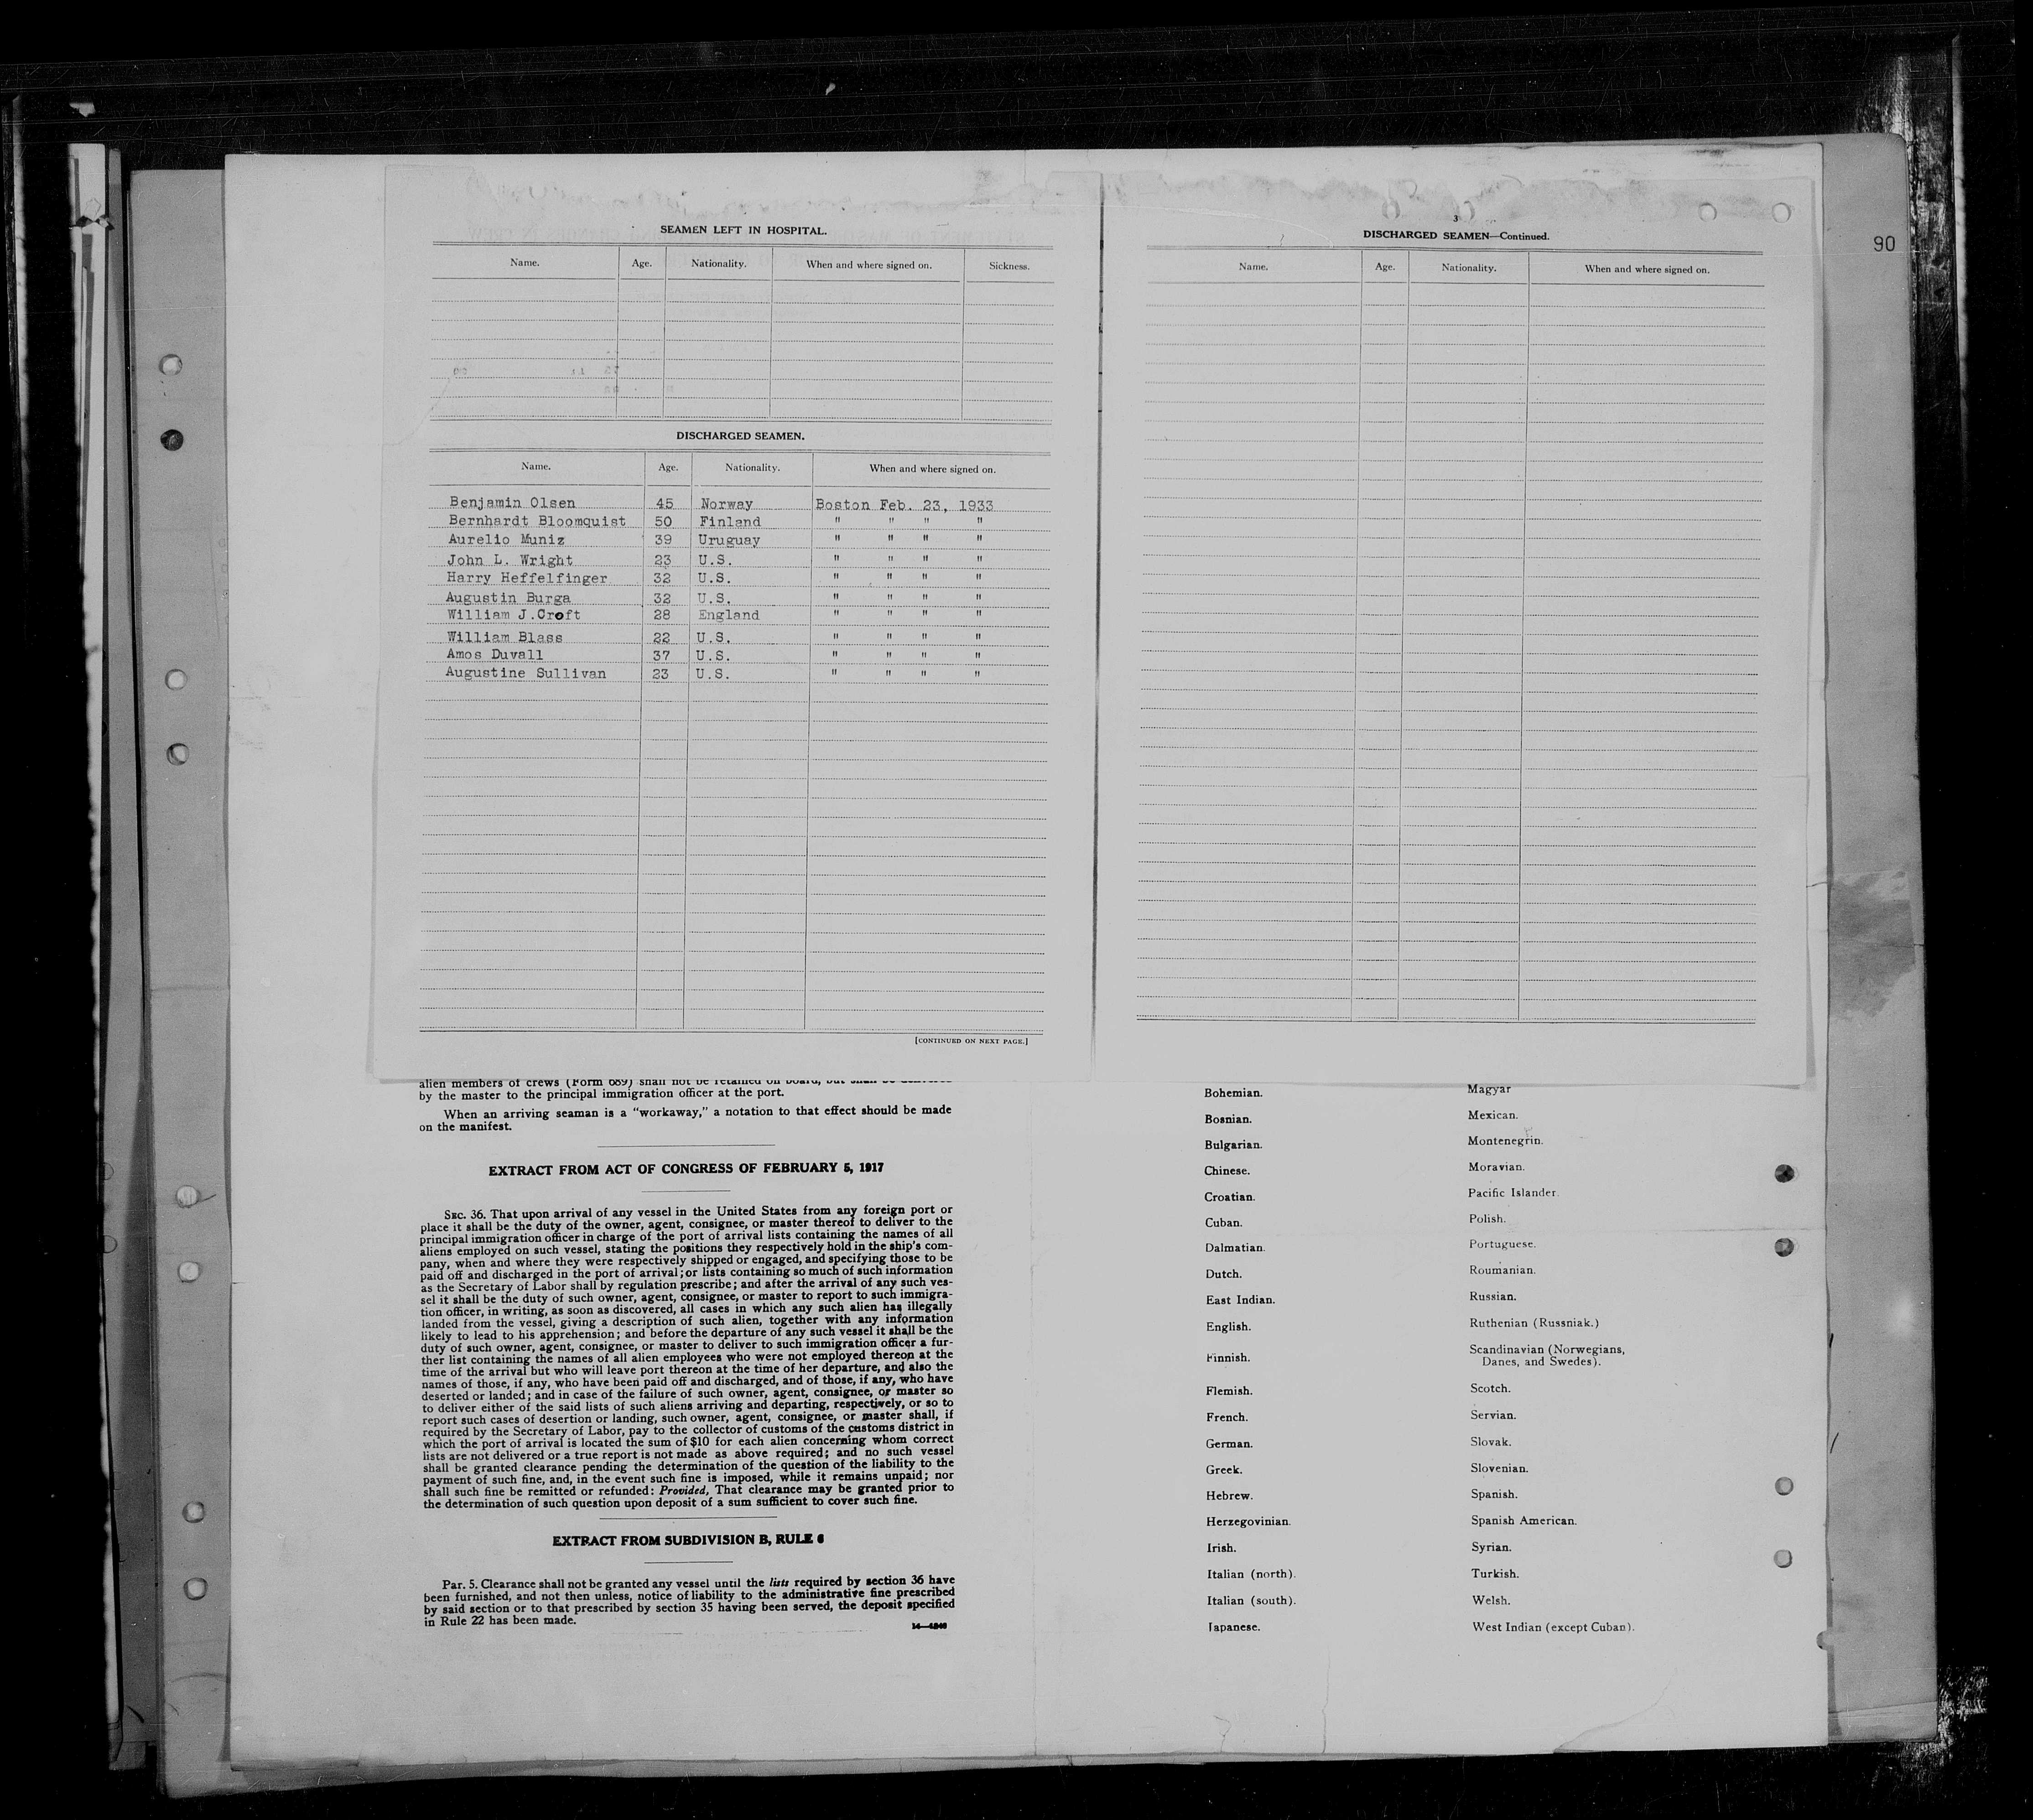 SEAMEN LEFT IN HOSPITAL.
Name. Age. Nationality. When and where signed on. Sickness.
DISCHARGED SEAMEN.
Name. Age. Nationality. When and where signed on.
Benjamin Olsen 45 Norway Boston Feb. 23, 1933
Bernhardt Bloomquist 50 Finland " " " "
Aurelio Muniz 39 Uruguay " " " "
John L. Wright 23 U.S. " " " "
Harry Heffelfinger 32 U.S. " " " "
Augustin Burga 32 U.S. " " " "
William J.Croft 28 England " " " "
William Blass 22 U.S. " " " "
Amos Duvall 37 U.S. " " " "
Augustine Sullivan 23 U.S. " " " "
[CONTINUED ON NEXT PAGE.]
3
DISCHARGED SEAMEN—Continued.
Name. Age. Nationality. When and where signed on.
90
alien members of crews (Form 689) shall not be retained on board, but shall be delivered
by the master to the principal immigration officer at the port.
When an arriving seaman is a "workaway," a notation to that effect should be made
on the manifest.
EXTRACT FROM ACT OF CONGRESS OF FEBRUARY 5, 1917
SEC. 36. That upon arrival of any vessel in the United States from any foreign port or
place it shall be the duty of the owner, agent, consignee, or master thereof to deliver to the
principal immigration officer in charge of the port of arrival lists containing the names of all
aliens employed on such vessel, stating the positions they respectively hold in the ship's com-
pany, when and where they were respectively shipped or engaged, and specifying those to be
paid off and discharged in the port of arrival; or lists containing so much of such information
as the Secretary of Labor shall by regulation prescribe; and after the arrival of any such ves-
sel it shall be the duty of such owner, agent, consignee, or master to report to such immigra-
tion officer, in writing, as soon as discovered, all cases in which any such alien has illegally
landed from the vessel, giving a description of such alien, together with any information
likely to lead to his apprehension; and before the departure of any such vessel it shall be the
duty of such owner, agent, consignee, or master to deliver to such immigration officer a fur-
ther list containing the names of all alien employees who were not employed thereon at the
time of the arrival but who will leave port thereon at the time of her departure, and also the
names of those, if any, who have been paid off and discharged, and of those, if any, who have
deserted or landed; and in case of the failure of such owner, agent, consignee, or master so
to deliver either of the said lists of such aliens arriving and departing, respectively, or so to
report such cases of desertion or landing, such owner, agent, consignee, or master shall, if
required by the Secretary of Labor, pay to the collector of customs of the customs district in
which the port of arrival is located the sum of $10 for each alien concerning whom correct
lists are not delivered or a true report is not made as above required; and no such vessel
shall be granted clearance pending the determination of the question of the liability to the
payment of such fine, and, in the event such fine is imposed, while it remains unpaid; nor
shall such fine be remitted or refunded: Provided, That clearance may be granted prior to
the determination of such question upon deposit of a sum sufficient to cover such fine.
EXTRACT FROM SUBDIVISION B, RULE 6
Par. 5. Clearance shall not be granted any vessel until the lists required by section 36 have
been furnished, and not then unless, notice of liability to the administrative fine prescribed
by said section or to that prescribed by section 35 having been served, the deposit specified
in Rule 22 has been made.
Bohemian. Magyar
Bosnian. Mexican.
Bulgarian. Montenegrin.
Chinese. Moravian.
Croatian. Pacific Islander.
Cuban. Polish.
Dalmatian. Portuguese.
Dutch. Roumanian.
East Indian. Russian.
English. Ruthenian (Russniak.)
Finnish. Scandinavian (Norwegians,
Danes, and Swedes).
Flemish. Scotch.
French. Servian.
German. Slovak.
Greek. Slovenian.
Hebrew. Spanish.
Herzegovinian. Spanish American.
Irish. Syrian.
Italian (north). Turkish.
Italian (south). Welsh.
Japanese. West Indian (except Cuban).